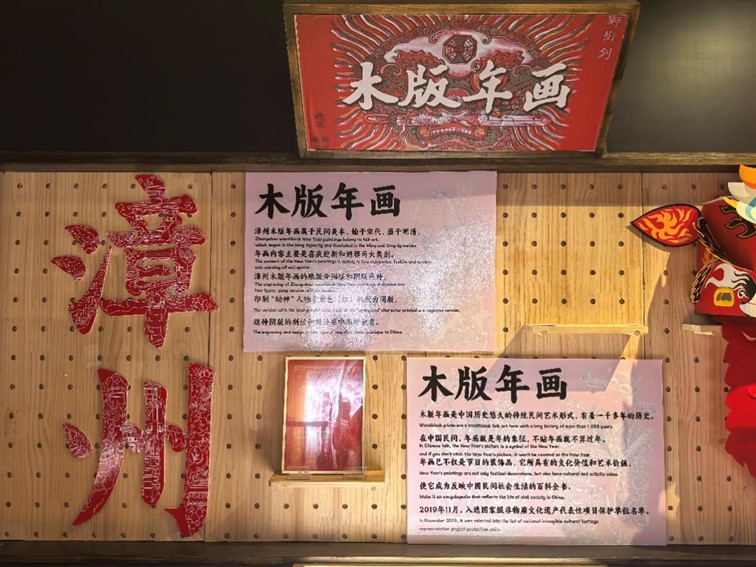 狮衔剑
木版年画
漳州
木版年画
漳州木版年画属于民间美术，始于宋代，盛于明清。
Zhangzhou woodblock New Year paintings belong to folk art,
which began in the Song Dynasty and flourished in the Ming and Qing dynasties.
年画内容主要是喜庆迎新和避邪两大类别。
The content of the New Year's paintings is mainly in two categories: festive and
and warding off evil spirits.
漳州木版年画的雕版分阳版和阴版两种。
The engraving of Zhangzhou woodblock New Year paintings is divided into
two types: yang version and yin version.
印制"幼神"人物
The version with the
the "young god" characters printed is a negative version.
The engraving and
is unique to China.
木版年画
木版年画是中国历史悠久的传统民间艺术形式，有着一千多年的历史。
Woodblock prints are a traditional folk art form with a long history of more than 1 000 years.
在中国民间，年画就是年的象征，不贴年画就不算过年。
In Chinese folk, the New Year's picture is a symbol of the New Year,
and if you don't stick the New Year's picture, it won't be counted as the New Year.
年画已不仅是节日的装饰品，它所具有的文化价值和艺术价值，
New Year's paintings are not only festival decorations, but also have cultural and artistic value.
使它成为反映中国民间社会生活的百科全书。
Make it an encyclopedia that reflects the life of civil society in China.
2019年11月，入选国家级非物质文化遗产代表性项目保护单位名单。
In November 2019, it was selected into the list of national intangible cultural heritage
representative project protection units.